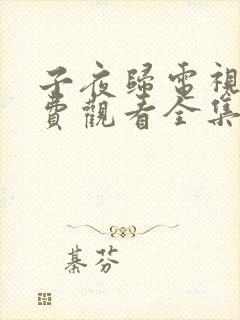 子夜歸電視
費觀看全集
綦芬